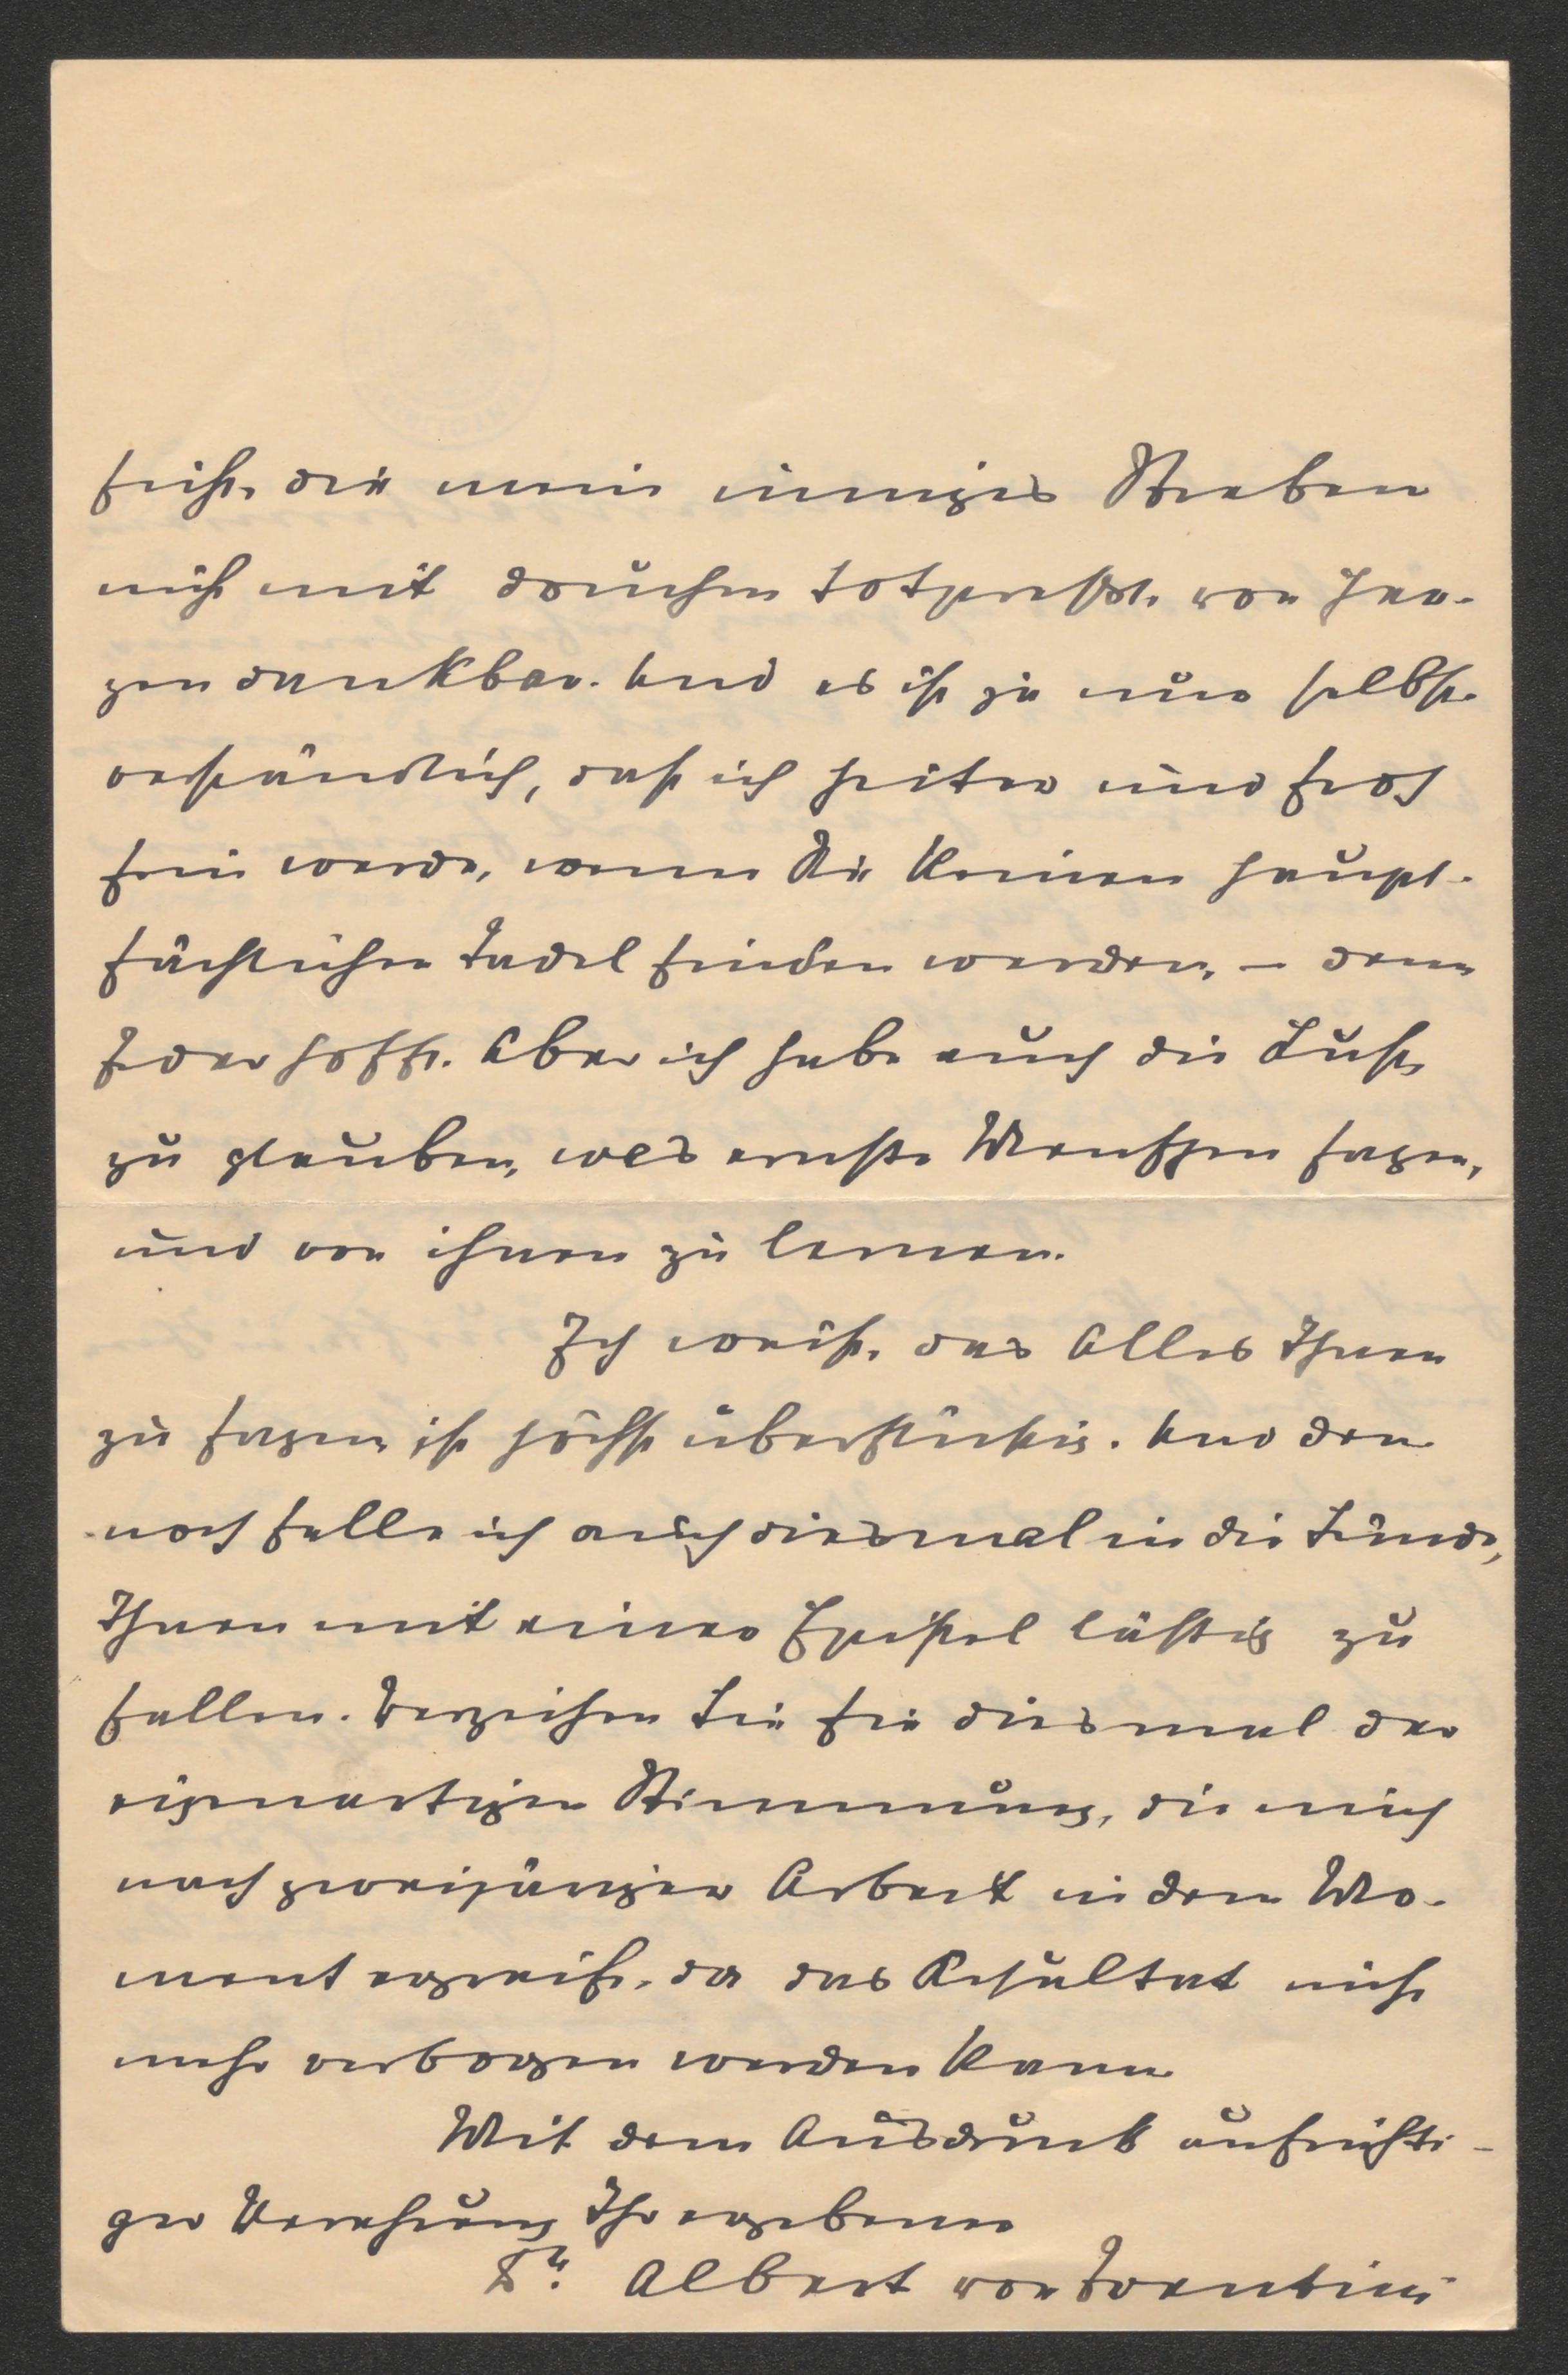 seiht, die mein inniges Streben
nicht mit druchen totpresst, von Her-
zen dankbar. Und es ist ja nur selbst-
verständlich, dass ich heiter und froh
sein werde, wenn Sie keinen haupt-
sächlichen Tadel finden werden, – denn
Jeder hofft. Aber ich habe auch die Lust,
zu glauben, was ernste Menschen sagen,
und von ihnen zu lernen.
Ich weiss, das Alles Ihnen
zu sagen, ist höchst überflüssig. Und den-
noch falle ich auch diesmal in die Sünde,
Ihnen mit einer Epistel lästig zu
fallen. Verzeihen Sie sie diesmal der
eigenartigen Stimmung, die mich
nach zweijähriger Arbeit in dem Mo-
ment ergreift, da das Resultat nicht
mehr verborgen werden kann.
Mit dem Ausdruck aufrichti-
ger Verehrung Ihr ergebener
Dr. Albert von Trentini